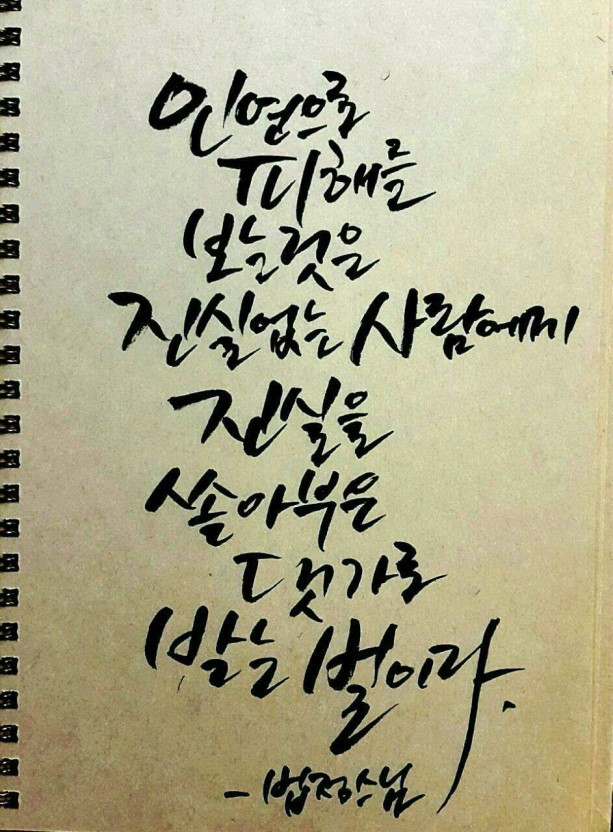 인연으로
피해를
보는것은
진실없는 사람에게
진실을
쏟아부은
댓가로
받는 벌이다.
- 법정스님